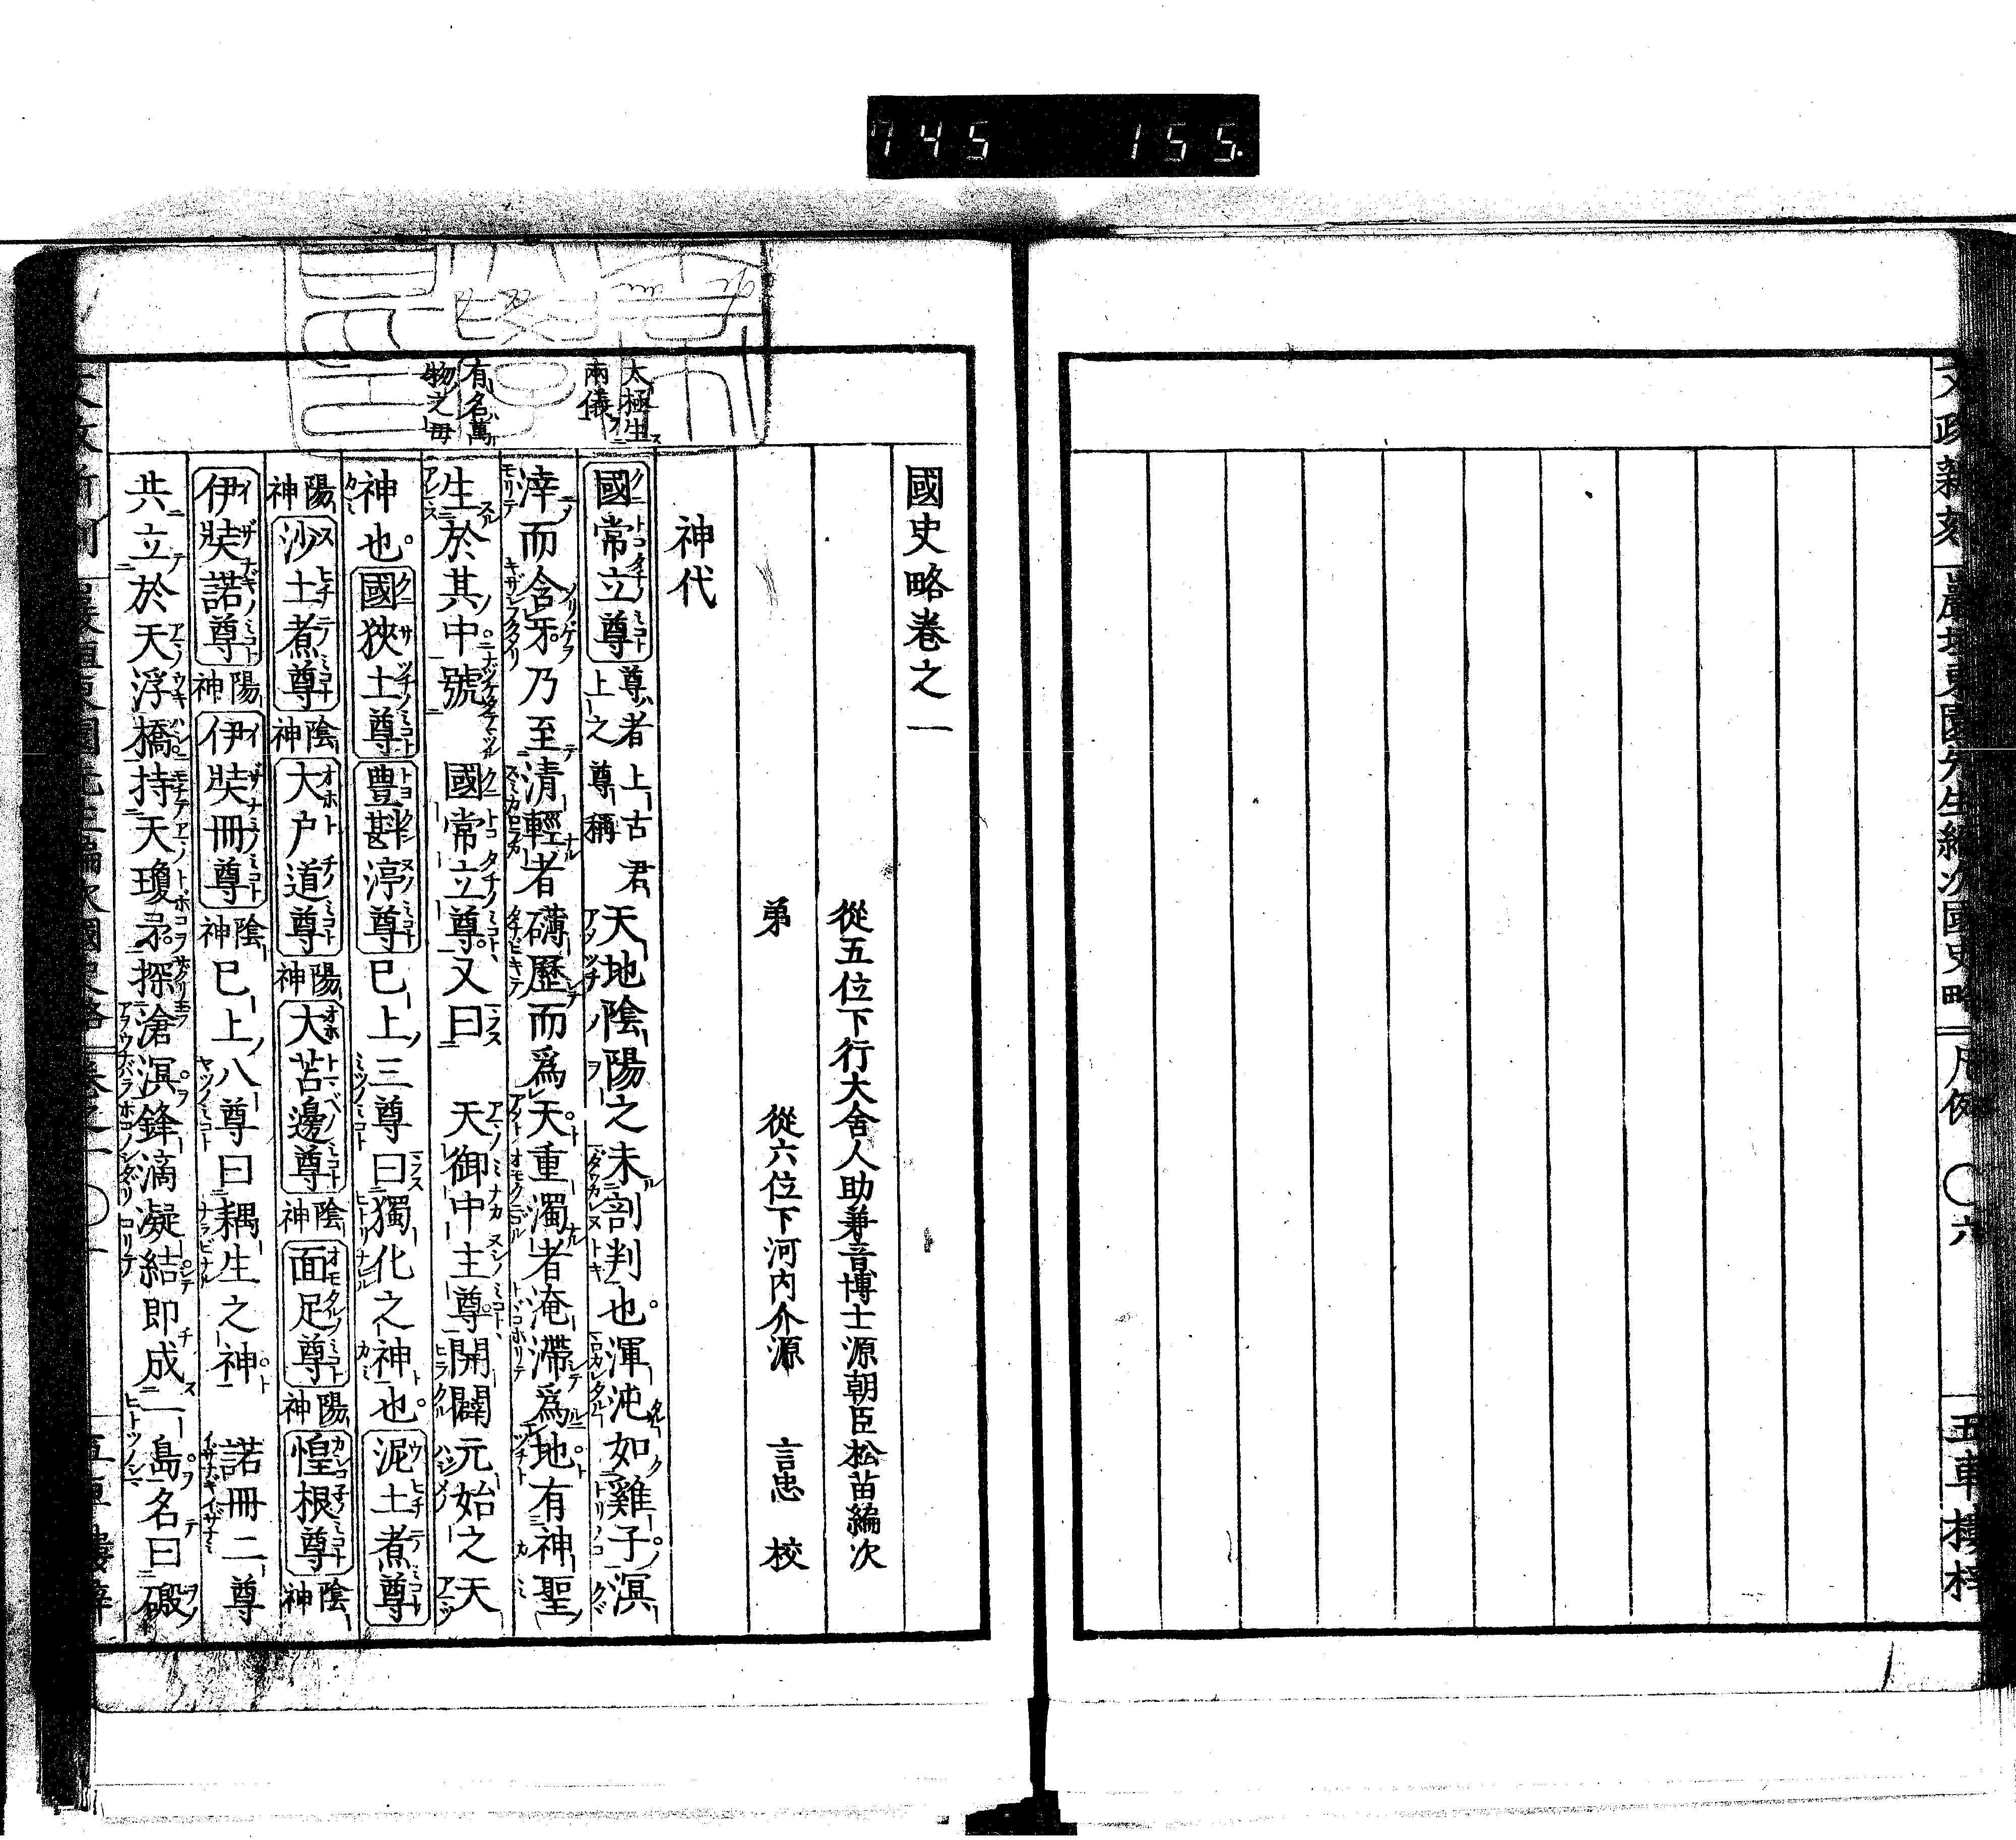 745 155.
文政新刻 巖垣東園先生編次國史略 凡例 〇六 五車樓梓
國史略卷之一
從五位下行大舍人助兼音博士源朝臣松苗編次
弟 從六位下河內介源 言忠 校
神代
太極生
兩儀
有名萬
物之毋
國常立尊 尊者上古君上之尊稱 天地陰陽之未剖判也渾沌如雞子溟
涬而含牙乃至清輕者礴歷而爲天重濁者淹滯爲地有神聖
生於其中號 國常立尊又曰 天御中主尊開闢元始之天
神也國狹土尊豊斟渟尊巳上三尊曰獨化之神也泥土煮尊
陽神沙土煮尊陰神大戶道尊陽神大苫邊尊陰神面足尊陽神惶根尊陰神
伊奘諾尊陽神伊奘冊尊陰神巳上八尊曰耦生之神 諾冊二尊
共立於天浮橋持天瓊矛探滄溟鋒滴凝結即成一島名曰磤